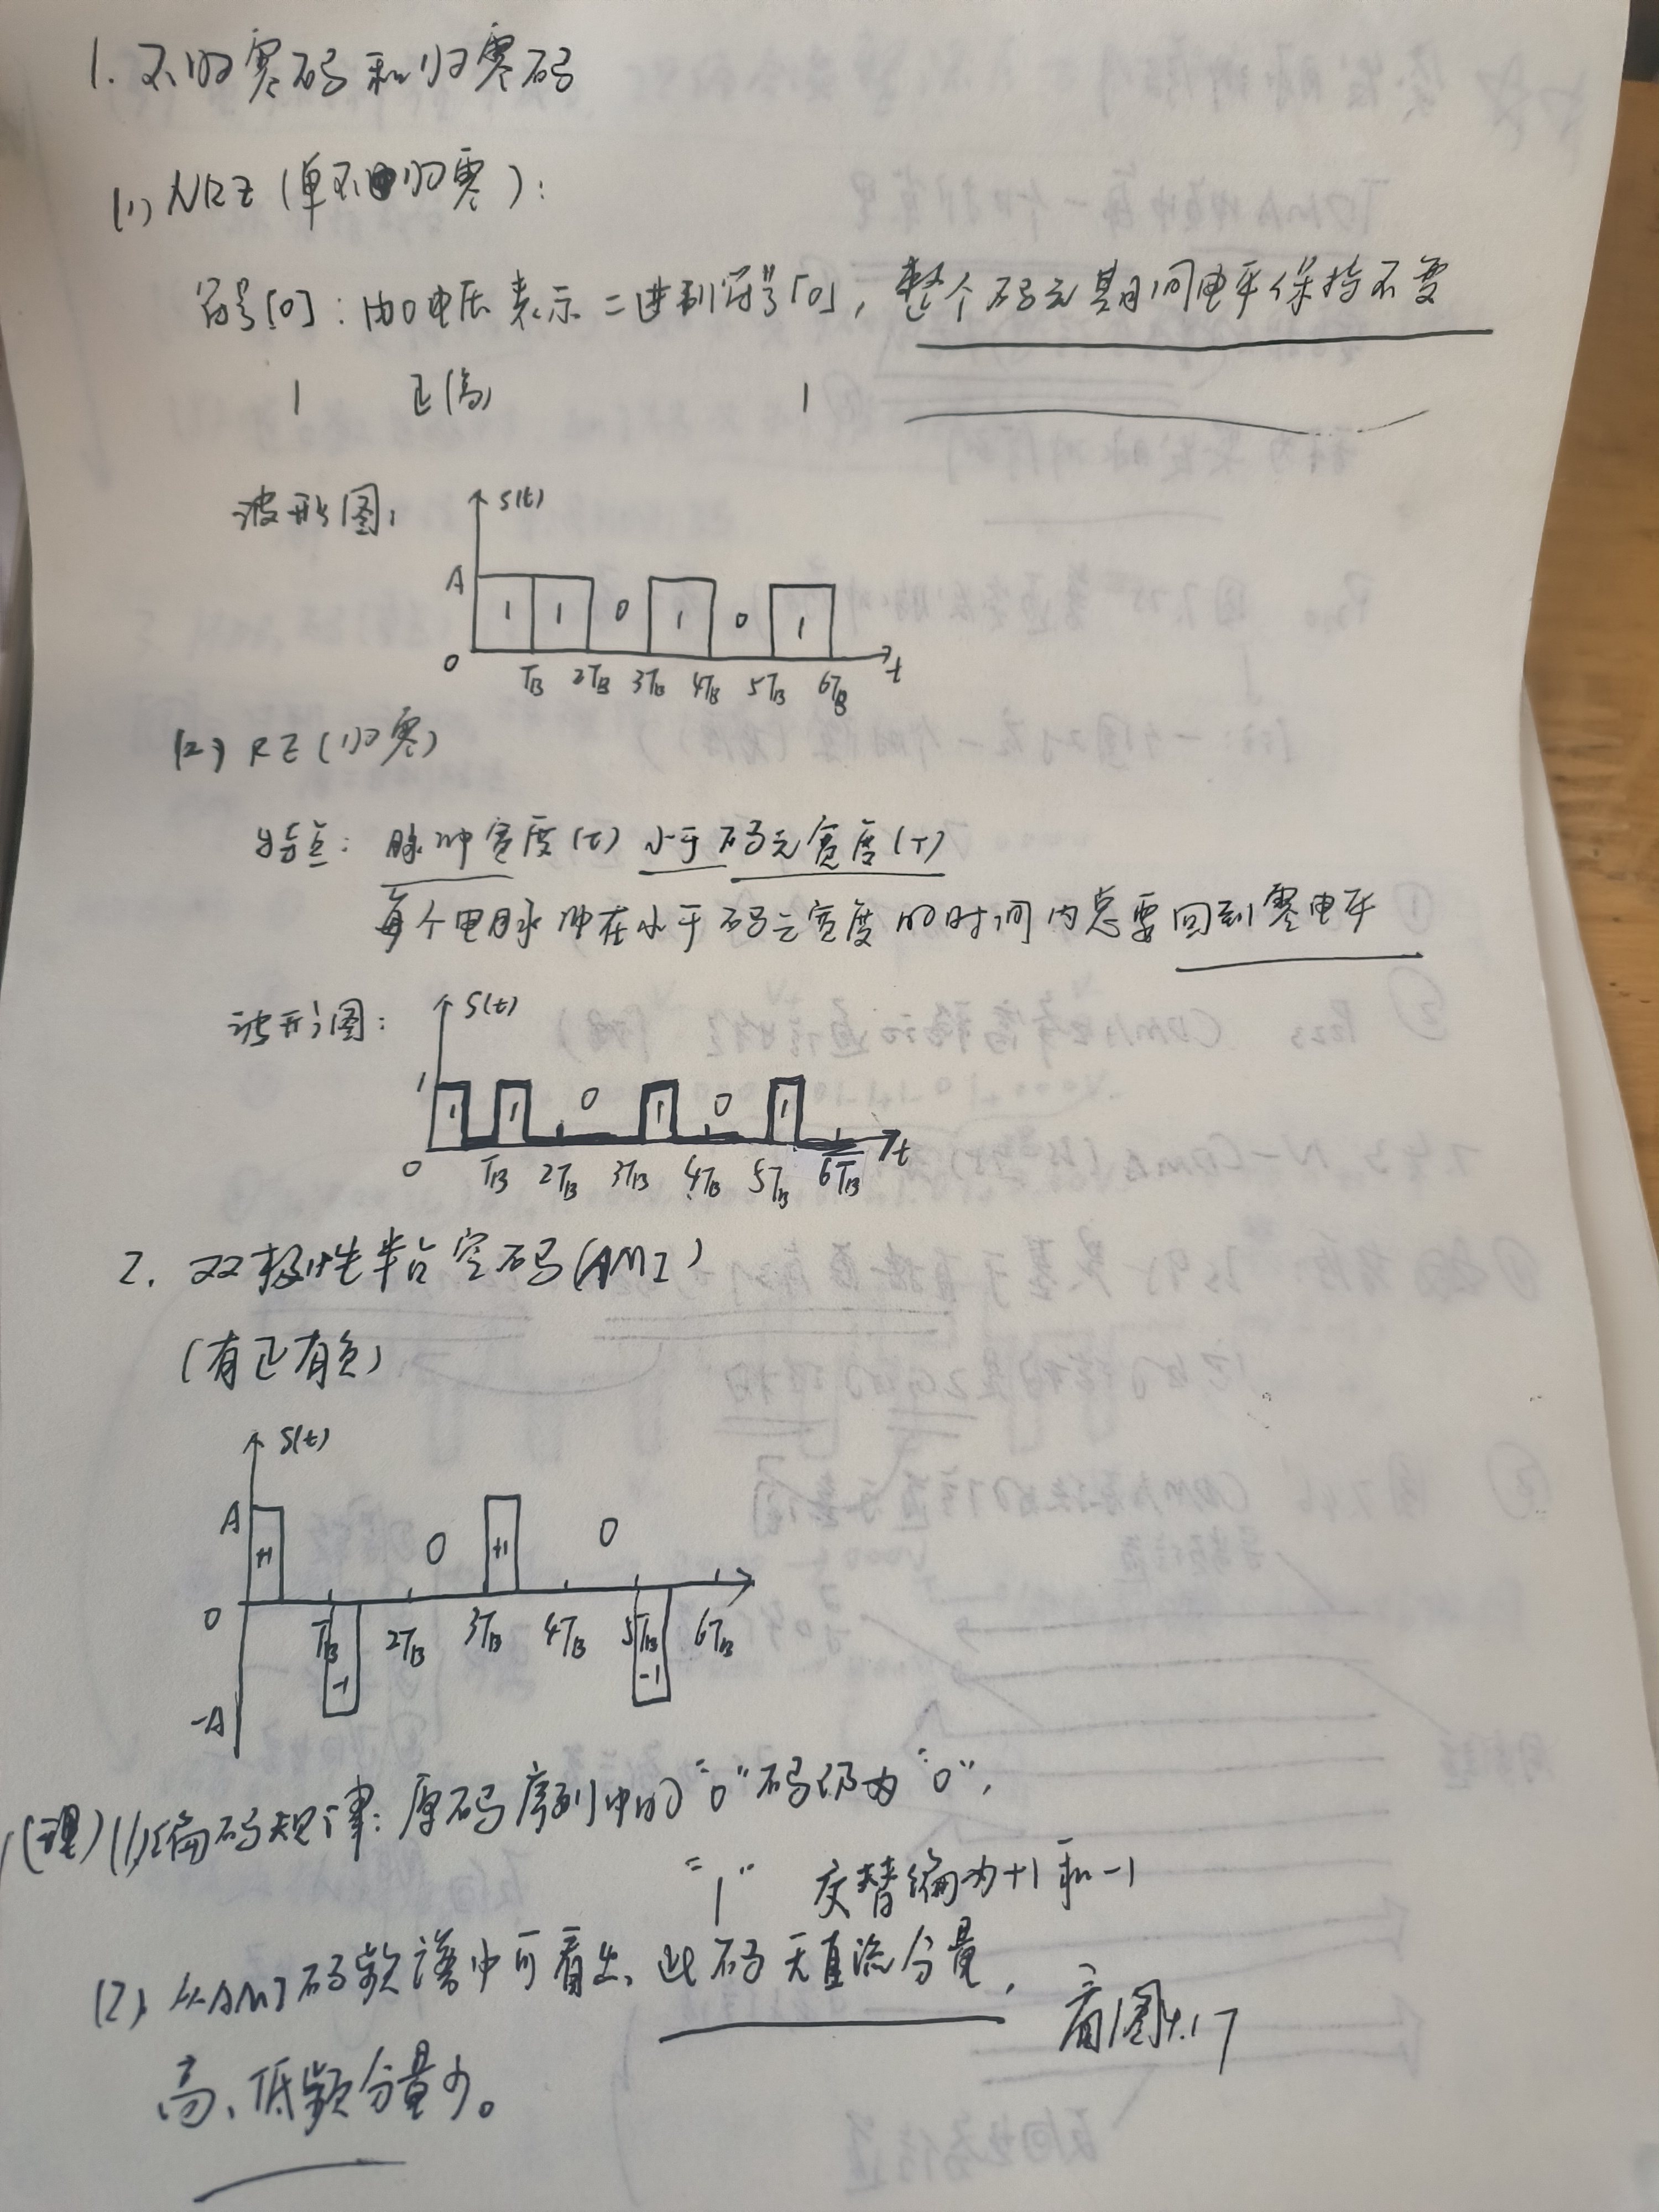 1. 不归零码和归零码
(1) NRZ (单不归零):
符号[0]: 由0电压表示二进制符号「0」, 整个码元期间电平保持不变
1 正(高) 1
波形图:
S(t)
A 1 1 0 1 0 1
0 TB 2TB 3TB 4TB 5TB 6TB t
(2) RZ (归零)
特点: 脉冲宽度(τ) 小于码元宽度(T)
每个电脉冲在小于码元宽度的时间内总要回到零电平
波形图:
S(t)
1 1 1 0 1 0 1
0 TB 2TB 3TB 4TB 5TB 6TB t
2. 双极性半占空码(AMI)
(有正有负)
S(t)
A +1 0 +1 0
0 TB 2TB 3TB 4TB 5TB 6TB
-1 -1
-A
(理) (1) 编码规律: 原码序列中的"0"码仍为"0",
"1" 交替编为+1和-1
(2) 从AMI码频谱中可看出, 此码无直流分量,
看图4.17
高、低频分量少。